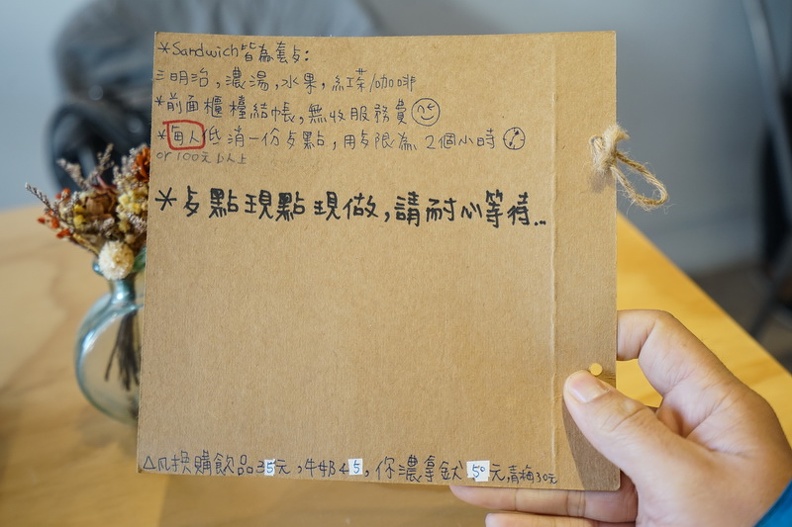 *Sandwich皆為套歺:
三明治,濃湯,水果,紅茶/咖啡
*前面櫃檯結帳,無收服務費
*每人低消一份歺點,用歺限為2個小時
or 100元以上
*歺點現點現做,請耐心等待...
△凡換購飲品35元,牛奶45,你濃拿鈦50元,青梅30元